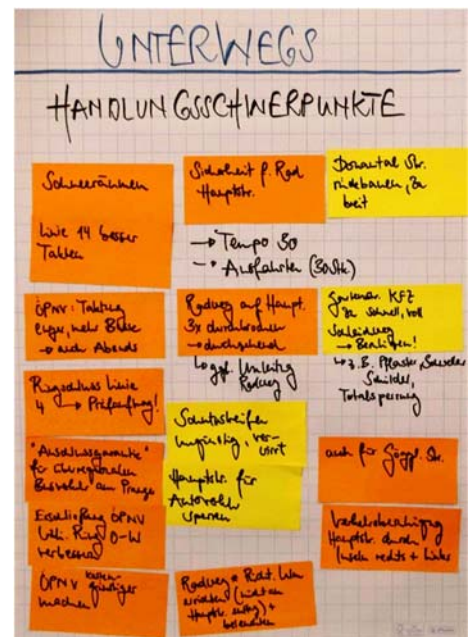 UNTERWEGS
HANDLUNGSSCHWERPUNKTE
Schneeräumen
Linie 14 besser
Takten
ÖPNV: Taktung
enger, mehr Busse
→ auch Abends
Ringschluss Linie
4 → Prüfauftrag!
"Anschlussgarantie"
für überregionalen
Busverkehr am
Erschließung ÖPNV
Ring O-W
verbessern
ÖPNV kosten-
günstiger
machen
Sicherheit f. Rad
Hauptstr.
→ Tempo 30
→ Ausfahrten (30 Stk.)
Radweg auf Hauptst.
3x durchbrochen
→ durchgehend
↳ ggf. Umleitung
Radweg
Schutzstreifen
ungünstig, ver-
wirrt
Hauptstr. für
Autoverkehr
sperren
Radweg Richt.
errichten (nicht an
Hauptstr. entlang) +
beleuchten
Donautal Str.
rückbauen, zu
breit
KFZ
zu schnell, voll
→ Beruhigen!
↳ z.B. Pflaster, Schweller
Schilder,
Totalsperrung
auch für Göggl. Str.
Verkehrsberuhigung
Hauptstr. durch
Inseln rechts + links